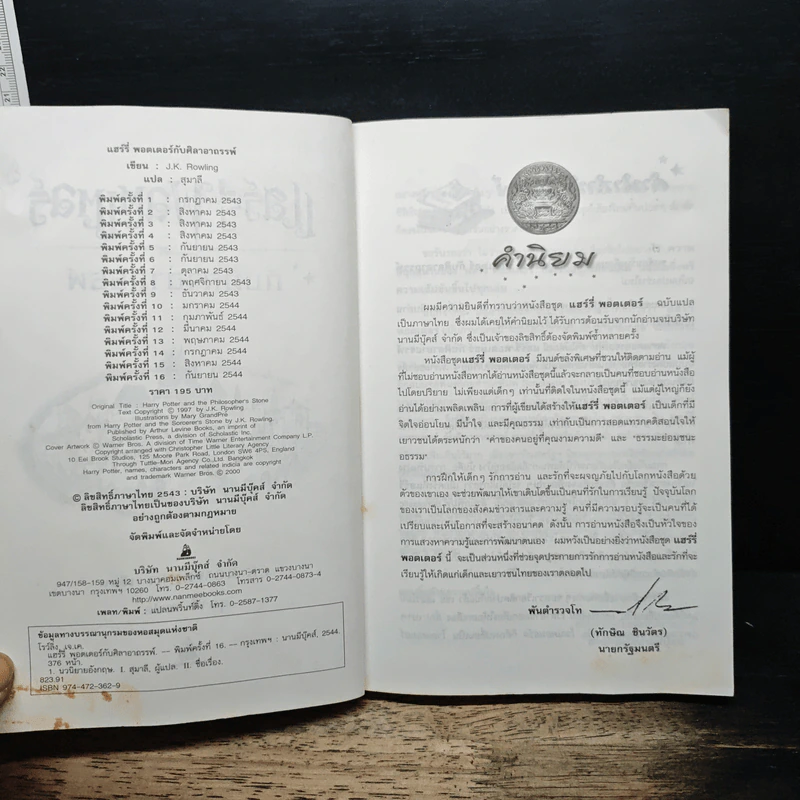 แฮร์รี่ พอตเตอร์กับศิลาอาถรรพ์
เขียน : J.K. Rowling
แปล : สุมาลี
พิมพ์ครั้งที่ 1 : กรกฎาคม 2543
พิมพ์ครั้งที่ 2 : สิงหาคม 2543
พิมพ์ครั้งที่ 3 : สิงหาคม 2543
พิมพ์ครั้งที่ 4 : สิงหาคม 2543
พิมพ์ครั้งที่ 5 : กันยายน 2543
พิมพ์ครั้งที่ 6 : กันยายน 2543
พิมพ์ครั้งที่ 7 : ตุลาคม 2543
พิมพ์ครั้งที่ 8 : พฤศจิกายน 2543
พิมพ์ครั้งที่ 9 : ธันวาคม 2543
พิมพ์ครั้งที่ 10 : มกราคม 2544
พิมพ์ครั้งที่ 11 : กุมภาพันธ์ 2544
พิมพ์ครั้งที่ 12 : มีนาคม 2544
พิมพ์ครั้งที่ 13 : พฤษภาคม 2544
พิมพ์ครั้งที่ 14 : กรกฎาคม 2544
พิมพ์ครั้งที่ 15 : สิงหาคม 2544
พิมพ์ครั้งที่ 16 : กันยายน 2544
ราคา 195 บาท
Original Title : Harry Potter and the Philosopher's Stone
Text Copyright © 1997 by J.K. Rowling
Illustrations by Mary GrandPré
from Harry Potter and the Sorcerer's Stone by J.K. Rowling.
Published by Arthur Levine Books, an imprint of
Scholastic Press, a division of Scholastic Inc.
Cover Artwork © Warner Bros. A Division of Time Warner Entertainment Company L.P.
Copyright arranged with Christopher Little Literary Agency
10 Eal Brook Studios, 125 Moore Park Road, London SW6 4PS, England
Through Tuttle-Mori Agency Co., Ltd. Bangkok
Harry Potter, names, characters and related indicia are copyright
and trademark Warner Bros. © 2000
© ลิขสิทธิ์ภาษาไทย 2543 : บริษัท นานมีบุ๊คส์ จำกัด
ลิขสิทธิ์ภาษาไทยเป็นของบริษัท นานมีบุ๊คส์ จำกัด
อย่างถูกต้องตามกฎหมาย
จัดพิมพ์และจัดจำหน่ายโดย
บริษัท นานมีบุ๊คส์ จำกัด
947/158-159 หมู่ 12 บางนาคอมเพล็กซ์ ถนนบางนา-ตราด แขวงบางนา
เขตบางนา กรุงเทพฯ 10260 โทร. 0-2744-0863 โทรสาร 0-2744-0873-4
http://www.nanmeebooks.com
เพลท/พิมพ์ : แปลนพริ้นท์ติ้ง โทร. 0-2587-1377
ข้อมูลทางบรรณานุกรมของหอสมุดแห่งชาติ
โรว์ลิ่ง, เจ.เค.
แฮร์รี่ พอตเตอร์กับศิลาอาถรรพ์. — พิมพ์ครั้งที่ 16. — กรุงเทพฯ : นานมีบุ๊คส์, 2544.
376 หน้า.
1. นวนิยายอังกฤษ. I. สุมาลี, ผู้แปล. II. ชื่อเรื่อง.
823.91
ISBN 974-472-362-9
คำนิยม
ผมมีความยินดีที่ทราบว่าหนังสือชุด แฮร์รี่ พอตเตอร์ ฉบับแปล
เป็นภาษาไทย ซึ่งผมได้เคยให้คำนิยมไว้ ได้รับการต้อนรับจากนักอ่านจนบริษัท
นานมีบุ๊คส์ จำกัด ซึ่งเป็นเจ้าของลิขสิทธิ์ต้องจัดพิมพ์ซ้ำหลายครั้ง
หนังสือชุดแฮร์รี่ พอตเตอร์ มีมนต์ขลังพิเศษที่ชวนให้ติดตามอ่าน แม้ผู้
ที่ไม่ชอบอ่านหนังสือหากได้อ่านหนังสือชุดนี้แล้วจะกลายเป็นคนที่ชอบอ่านหนังสือ
ไปโดยปริยาย ไม่เพียงแต่เด็กๆ เท่านั้นที่ติดใจในหนังสือชุดนี้ แม้แต่ผู้ใหญ่ก็ยัง
อ่านได้อย่างเพลิดเพลิน การที่ผู้เขียนได้สร้างให้แฮร์รี่ พอตเตอร์ เป็นเด็กที่มี
จิตใจอ่อนโยน มีน้ำใจ และมีคุณธรรม เท่ากับเป็นการสอดแทรกคติสอนใจให้
เยาวชนได้ตระหนักว่า "ค่าของคนอยู่ที่คุณงามความดี" และ "ธรรมะย่อมชนะ
อธรรม"
การฝึกให้เด็กๆ รักการอ่าน และรักที่จะผจญภัยไปกับโลกหนังสือด้วย
ตัวของเขาเอง จะช่วยพัฒนาให้เขาเติบโตขึ้นเป็นคนที่รักในการเรียนรู้ ปัจจุบันโลก
ของเราเป็นโลกของสังคมข่าวสารและความรู้ คนที่มีความรอบรู้จะเป็นคนที่ได้
เปรียบและเห็นโอกาสที่จะสร้างอนาคต ดังนั้น การอ่านหนังสือจึงเป็นหัวใจของ
การแสวงหาความรู้และการพัฒนาตนเอง ผมหวังเป็นอย่างยิ่งว่าหนังสือชุด แฮร์รี่
พอตเตอร์ นี้ จะเป็นส่วนหนึ่งที่ช่วยจุดประกายการรักการอ่านหนังสือและรักที่จะ
เรียนรู้ให้เกิดแก่เด็กและเยาวชนไทยของเราตลอดไป
พันตำรวจโท
(ทักษิณ ชินวัตร)
นายกรัฐมนตรี